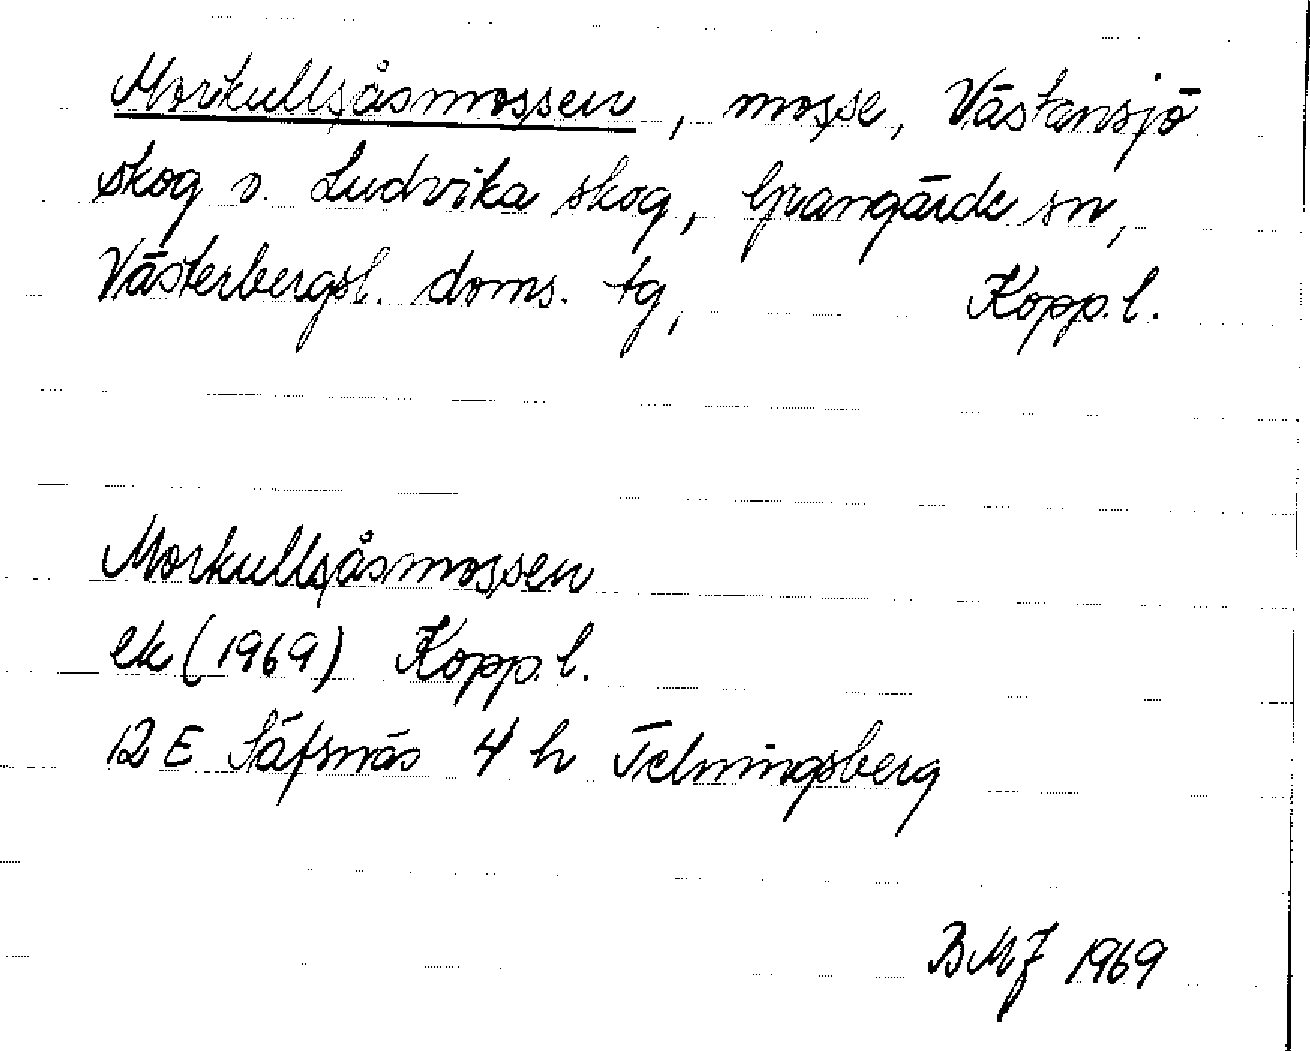 Morkullsåsmossen, mosse, Västansjö
skog o. Ludvika skog, Grangärde sn,
Västerbergsl. doms. tg, Kopp. l.
Morkullsåsmossen
ek (1969) Kopp. l.
12 E Säfsnäs 4 h Telningsberg
BMJ 1969